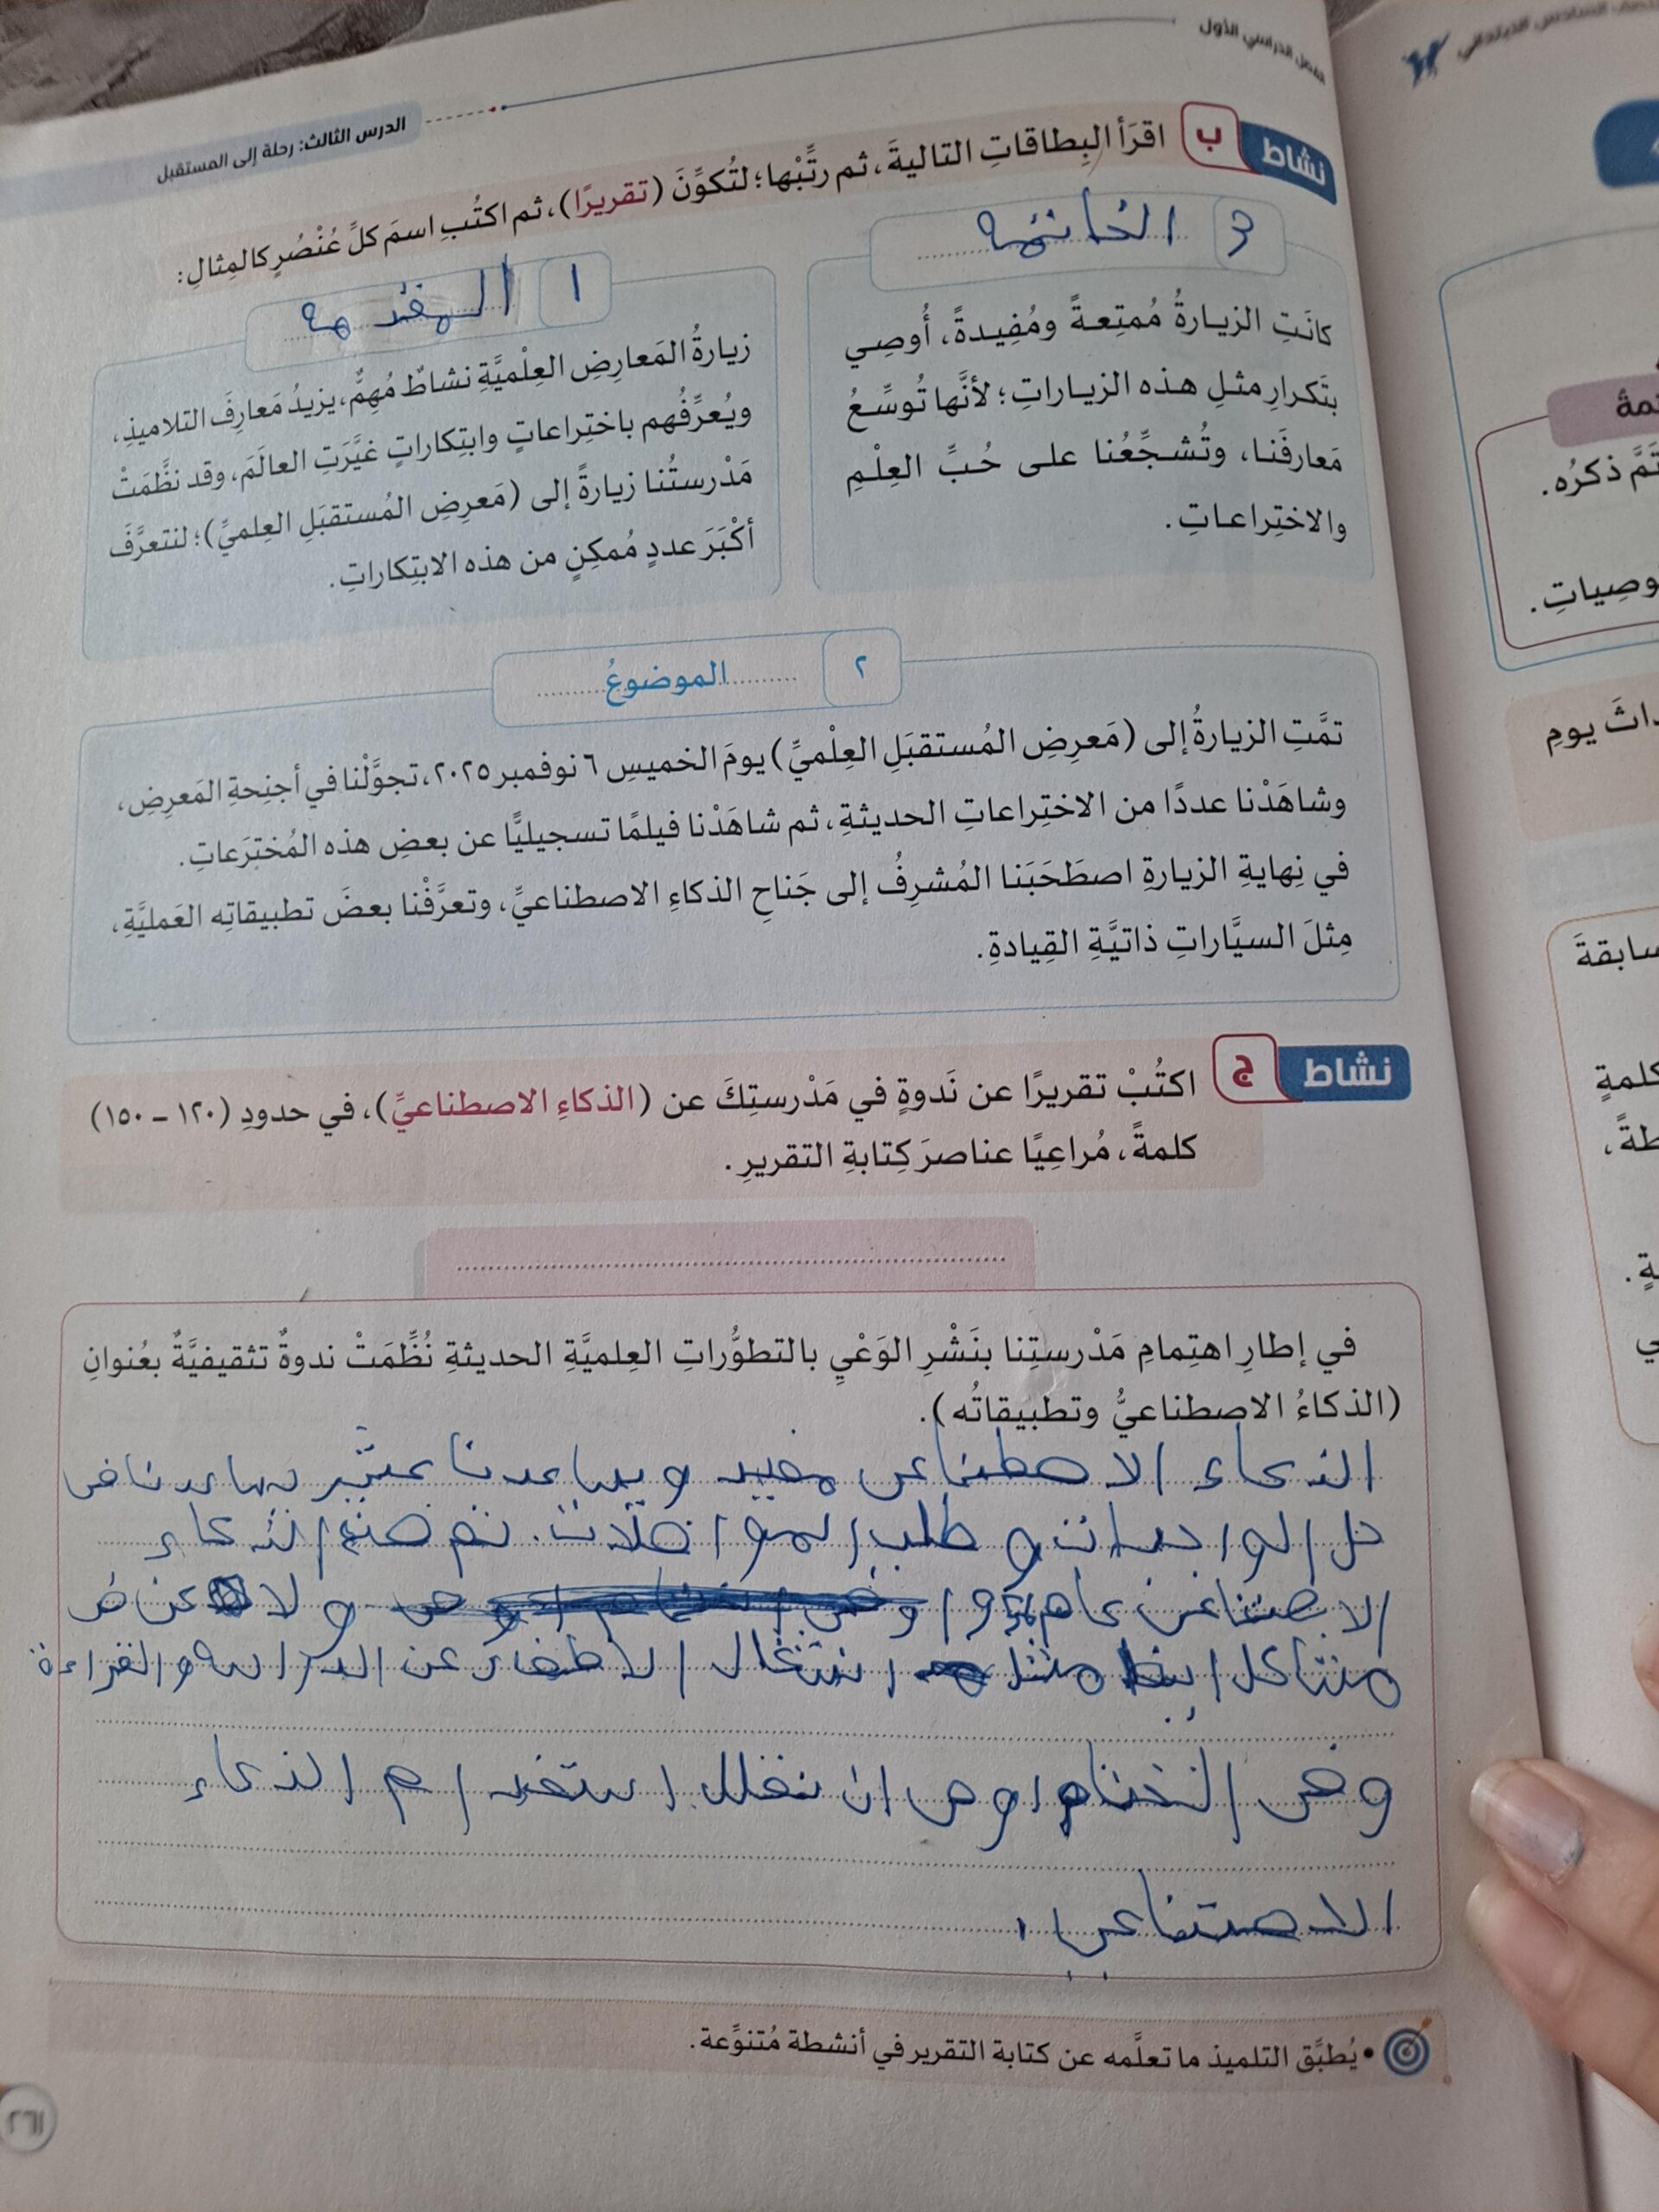 الفصل الدراسي الأول
الدرس الثالث: رحلة إلى المستقبل
نشاط ب اقرَأ البِطاقاتِ التاليةَ، ثم رتِّبْها؛ لتُكوِّنَ (تقريرًا)، ثم اكتُبِ اسمَ كلِّ عُنْصُرٍ كالمِثالِ:
3 الخاتمه
كانَتِ الزيارةُ مُمتِعةً ومُفِيدةً، أُوصِي
بتَكرارِ مثلِ هذه الزياراتِ؛ لأنَّها تُوسِّعُ
مَعارفَنا، وتُشجِّعُنا على حُبِّ العِلْمِ
والاختِراعاتِ.
١ المقدمه
زيارةُ المَعارِضِ العِلْميَّةِ نشاطٌ مُهِمٌّ، يزيدُ مَعارِفَ التلاميذِ،
ويُعرِّفُهم باختِراعاتٍ وابتِكاراتٍ غيَّرَتِ العالَمَ، وقد نظَّمَتْ
مَدْرستُنا زيارةً إلى (مَعرِضِ المُستقبَلِ العِلميِّ)؛ لنتعرَّفَ
أكْبَرَ عددٍ مُمكِنٍ من هذه الابتِكاراتِ.
٢ الموضوعُ
تمَّتِ الزيارةُ إلى (مَعرِضِ المُستقبَلِ العِلْميِّ) يومَ الخميسِ ٦ نوفمبر ٢٠٢٥، تجوَّلْنا في أجنِحةِ المَعرِضِ،
وشاهَدْنا عددًا من الاختِراعاتِ الحديثةِ، ثم شاهَدْنا فيلمًا تسجيليًّا عن بعضِ هذه المُختِرَعاتِ.
في نِهايةِ الزيارةِ اصطَحَبَنا المُشرِفُ إلى جَناحِ الذكاءِ الاصطناعيِّ، وتعرَّفْنا بعضَ تطبيقاتِه العَمليَّةِ،
مِثلَ السيَّاراتِ ذاتيَّةِ القِيادةِ.
نشاط ج اكتُبْ تقريرًا عن نَدوةٍ في مَدْرستِكَ عن (الذكاءِ الاصطناعيِّ)، في حدودِ (١٢٠ – ١٥٠)
كلمةً، مُراعِيًا عناصرَ كِتابةِ التقريرِ.
في إطارِ اهتِمامِ مَدْرستِنا بنَشْرِ الوَعْيِ بالتطوُّراتِ العِلميَّةِ الحديثةِ نُظِّمَتْ ندوةٌ تثقيفيَّةٌ بعُنوانِ
(الذكاءُ الاصطناعيُّ وتطبيقاتُه).
الذكاء الاصطناعى مفيد و يساعدنا كثير يساعدنا فى
حل الواجبات و طلب المواصلات. تم صنع الذكاء
الاصتناعى عام و لاكن فى
مشاكل ايضا مثل انشغال الاطفال عن الدراسه و القراءة
وفى الختام اوصى ان نقلل استخدام الذكاء
الاصتناعي.
• يُطبِّق التلميذ ما تعلَّمه عن كتابة التقرير في أنشطة مُتنوِّعة.
تمَّ ذكرُه.
وصِياتِ.
داثَ يومِ
سابقةَ